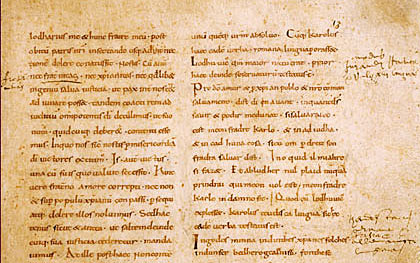 lodharius me & hunc fratre meu. post
obitu patris nri insectando usq; ad inter
nitione delere conatus sit. nostis. Cu aut
nec fraternitas. nec xpianitas. nec qdlib&
ingeniu salva iusticia. ut pax int nos ee&
adiuvare posse&. tande coacti rem ad
iuditiu omnipotentis di detulimus. ut suo
nutu. quid cuiq; deber&. contenti esse
mus. In quo nos sic nostis p misericordia
di victores extitim. Is aut victus.
una cu suis quo valuit secessit. Hinc
vero fraterno amore correpti. nec non
& sup pplm xpianu conpassi. psequi
atq; delere illos noluimus. Sed hacte
nus sicut & antea. ut salte deinde
cuiq; sua iusticia cederetur. manda
vimus. At ille post haec non conten
13
nunc quoq; uram absoluo. Cuq; karolus
haec eade verba. romana lingua porasset.
Lodhuvic qm maior natu erat. prior
haec deinde se servaturu testatus est.
Pro do amur & p xpian poblo & nro comun
saluament. dist di in auant. inquantds
savir & podir me dunat. si saluaraieo.
cist meon fradre karlo. & in aiudha.
& in cadhuna cosa. sicu om p dreit son
fradra saluar dist. In o quid il mi altre
si faz&. Et ab ludher nul plaid nuqua
prindrai qui meon uol cist. meon fradre
karle in damno sit. Quod cu lodhuvic
explesset. karolus teudisca lingua sic hec
eade verba testatus est.
In godes minna indinthes xpanes folches
indunser bedhero gealtnissi. fonthese